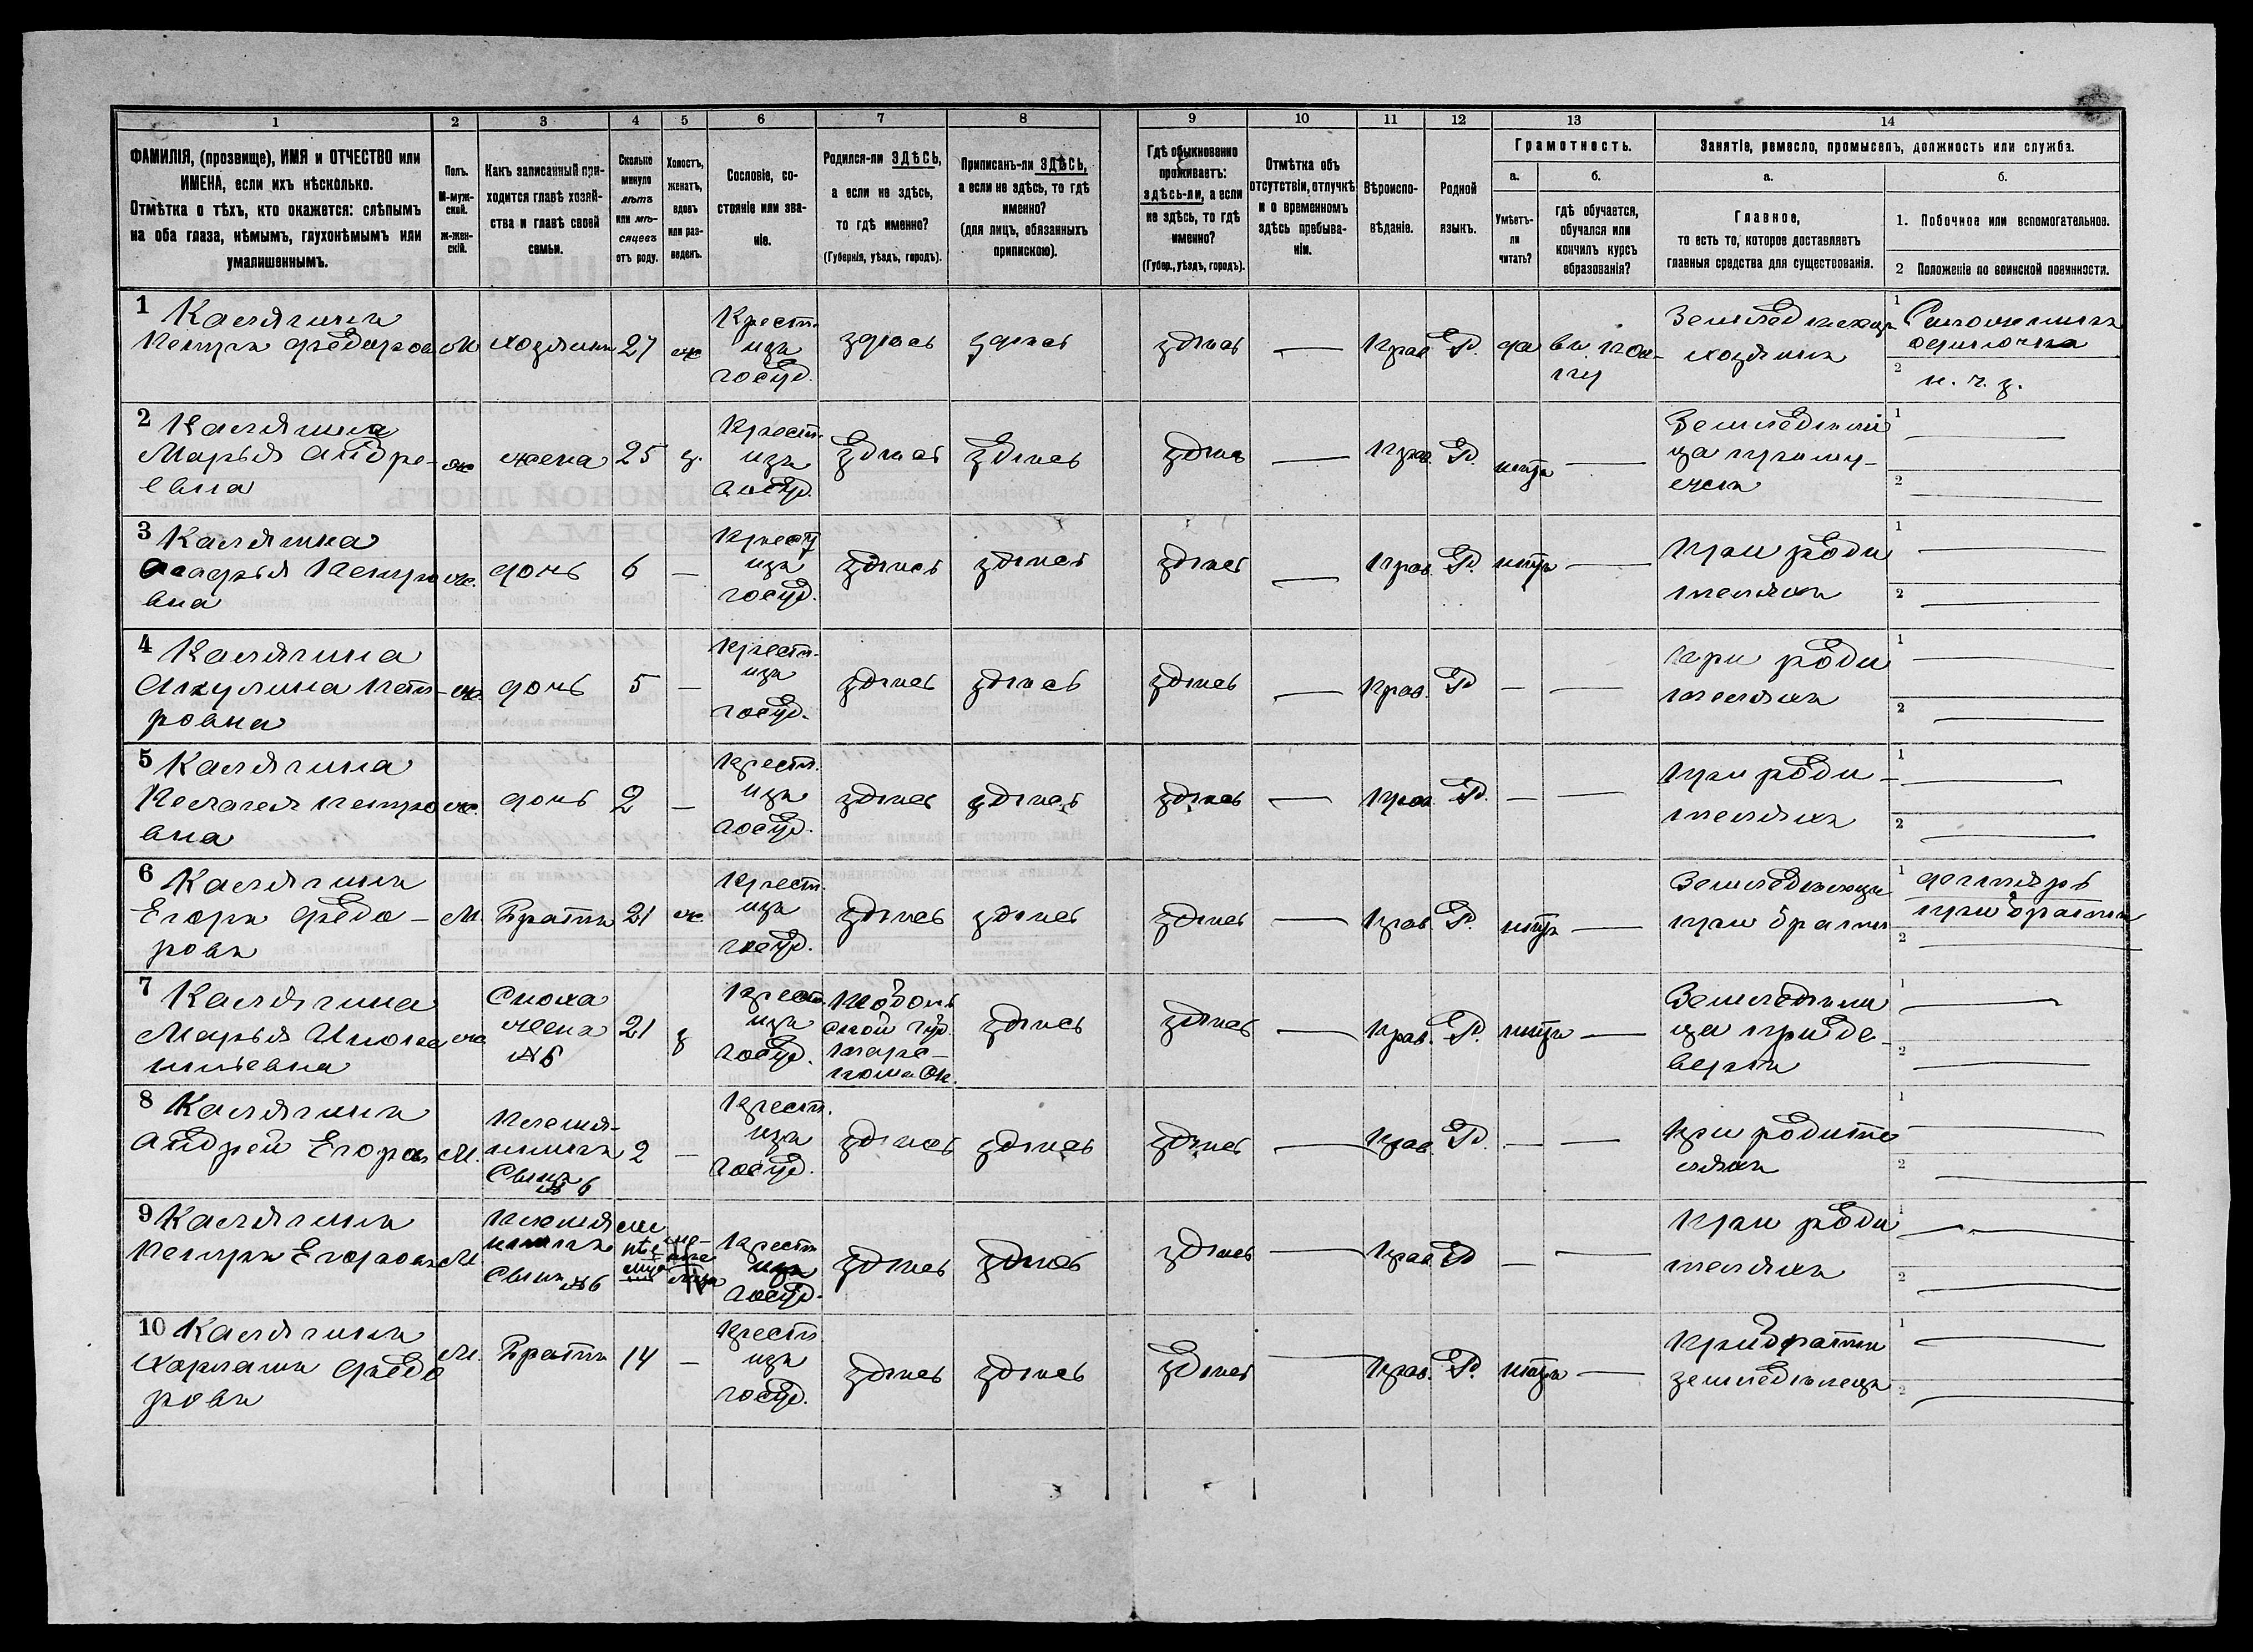 1 2 3 4 5 6 7 8 9 10 11 12 13 14
ФАМИЛІЯ, (прозвище), ИМЯ и ОТЧЕСТВО или
ИМЕНА, если ихъ нѣсколько.
Отмѣтка о тѣхъ, кто окажется: слѣпымъ
на оба глаза, нѣмымъ, глухонѣмымъ или
умалишеннымъ.
Полъ.
М-муж-
ской.
Ж-жен-
скій.
Какъ записанный при-
ходится главѣ хозяй-
ства и главѣ своей
семьи.
Сколько
минуло
лѣтъ
или мѣ-
сяцевъ
отъ роду.
Холостъ,
женатъ,
вдовъ
или раз-
веденъ.
Сословіе, со-
стояніе или зва-
ніе.
Родился-ли ЗДѢСЬ,
а если не здѣсь,
то гдѣ именно?
(Губернія, уѣздъ, городъ).
Приписанъ-ли ЗДѢСЬ,
а если не здѣсь, то гдѣ
именно?
(для лицъ, обязанныхъ
припискою).
Гдѣ обыкновенно
проживаетъ:
здѣсь-ли, а если
не здѣсь, то гдѣ
именно?
(Губер., уѣздъ, городъ).
Отмѣтка объ
отсутствіи, отлучкѣ
и о временномъ
здѣсь пребыва-
ніи.
Вѣроиспо-
вѣданіе.
Родной
языкъ.
Грамотность.
а.
Умѣетъ-
ли
читать?
б.
гдѣ обучается,
обучался или
кончилъ курсъ
образованія?
Занятіе, ремесло, промыселъ, должность или служба.
а.
Главное,
то есть то, которое доставляетъ
главныя средства для существованія.
б.
1. Побочное или вспомогательное.
2 Положеніе по воинской повинности.
1 Калягинъ
Петръ Федоровъ
М
хозяинъ
27
ж
Крест.
изъ
госуд.
здѣсь
здѣсь
здѣсь
—
Прав.
Р.
да
Земледѣлецъ
хозяинъ
1
2
2 Калягина
Марья Андре-
евна
ж
жена
25
з.
Крест.
изъ
госуд.
здѣсь
здѣсь
здѣсь
—
Прав.
Р.
нѣтъ
—
1 —
2 —
3 Калягина
Петро
вна
ж.
дочь
6
—
Крест
изъ
госуд.
здѣсь
здѣсь
здѣсь
—
Прав.
Р.
нѣтъ
—
при роди
теляхъ
1 —
2 —
4 Калягина
Акулина Пет-
ровна
ж.
дочь
5
—
Крест.
изъ
госуд.
здѣсь
здѣсь
здѣсь
—
Прав.
Р
—
—
при роди
теляхъ
1 —
2 —
5 Калягина
Пелагея Петро
вна
ж.
дочь
2
—
Крест.
изъ
госуд.
здѣсь
здѣсь
здѣсь
—
Прав.
Р.
—
—
при роди-
теляхъ
1 —
2 —
6 Калягинъ
Егоръ Федо-
ровъ
М.
Братъ
21
ж
Крест.
изъ
госуд.
здѣсь
здѣсь
здѣсь
—
Прав.
Р.
нѣтъ
—
Земледѣлецъ
при братѣ
1
при братѣ
2 —
7 Калягина
Марья
ж
Сноха
жена
№6
21
з
Крест.
изъ
госуд.
Тоболь
ской губ.
здѣсь
здѣсь
—
Прав.
Р.
нѣтъ
—
Земледѣли
ца при де-
верѣ
1 —
2 —
8 Калягинъ
Андрей Егоровъ
М.
Племян-
никъ
Сынъ
№ 6
2
—
Крест.
изъ
госуд.
здѣсь
здѣсь
здѣсь
—
Прав.
Р.
—
—
при родите
ляхъ
1 —
2 —
9 Калягинъ
Петръ Егоровъ
М
Племян
никъ
Сынъ №6
Крест
изъ
госуд.
здѣсь
здѣсь
здѣсь
—
Прав
Р
—
—
при роди
теляхъ
1 —
2 —
10 Калягинъ
Харлампъ Федо
ровъ
М.
Братъ
14
—
Крест
изъ
госуд.
здѣсь
здѣсь
здѣсь
—
Прав.
Р.
нѣтъ
—
при братѣ
земледѣлецъ
1 —
2 —